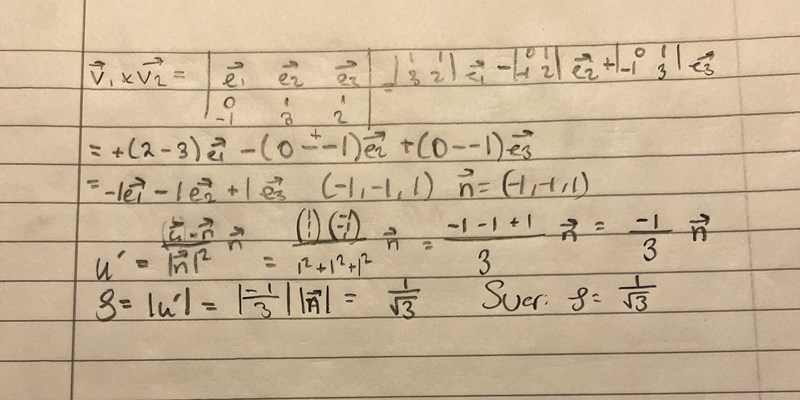 v⃗₁ × v⃗₂ = | e⃗₁ e⃗₂ e⃗₃ | = | 1 1 | e⃗₁ - | 0 1 | e⃗₂ + | 0 1 | e⃗₃
| 0 1 1 | | 3 2 | | -1 2 | | -1 3 |
| -1 3 2 |
= +(2-3)e⃗₁ - (0 - -1)e⃗₂ + (0 - -1)e⃗₃
= -1e⃗₁ - 1e⃗₂ + 1e⃗₃ (-1, -1, 1) n⃗ = (-1, -1, 1)
u' = (u⃗·n⃗)/|n⃗|² n⃗ = /(1²+1²+1²) n⃗ = (-1-1+1)/3 n⃗ = -1/3 n⃗
= |u'| = |-1/3| |n⃗| = 1/√3 Svar: = 1/√3